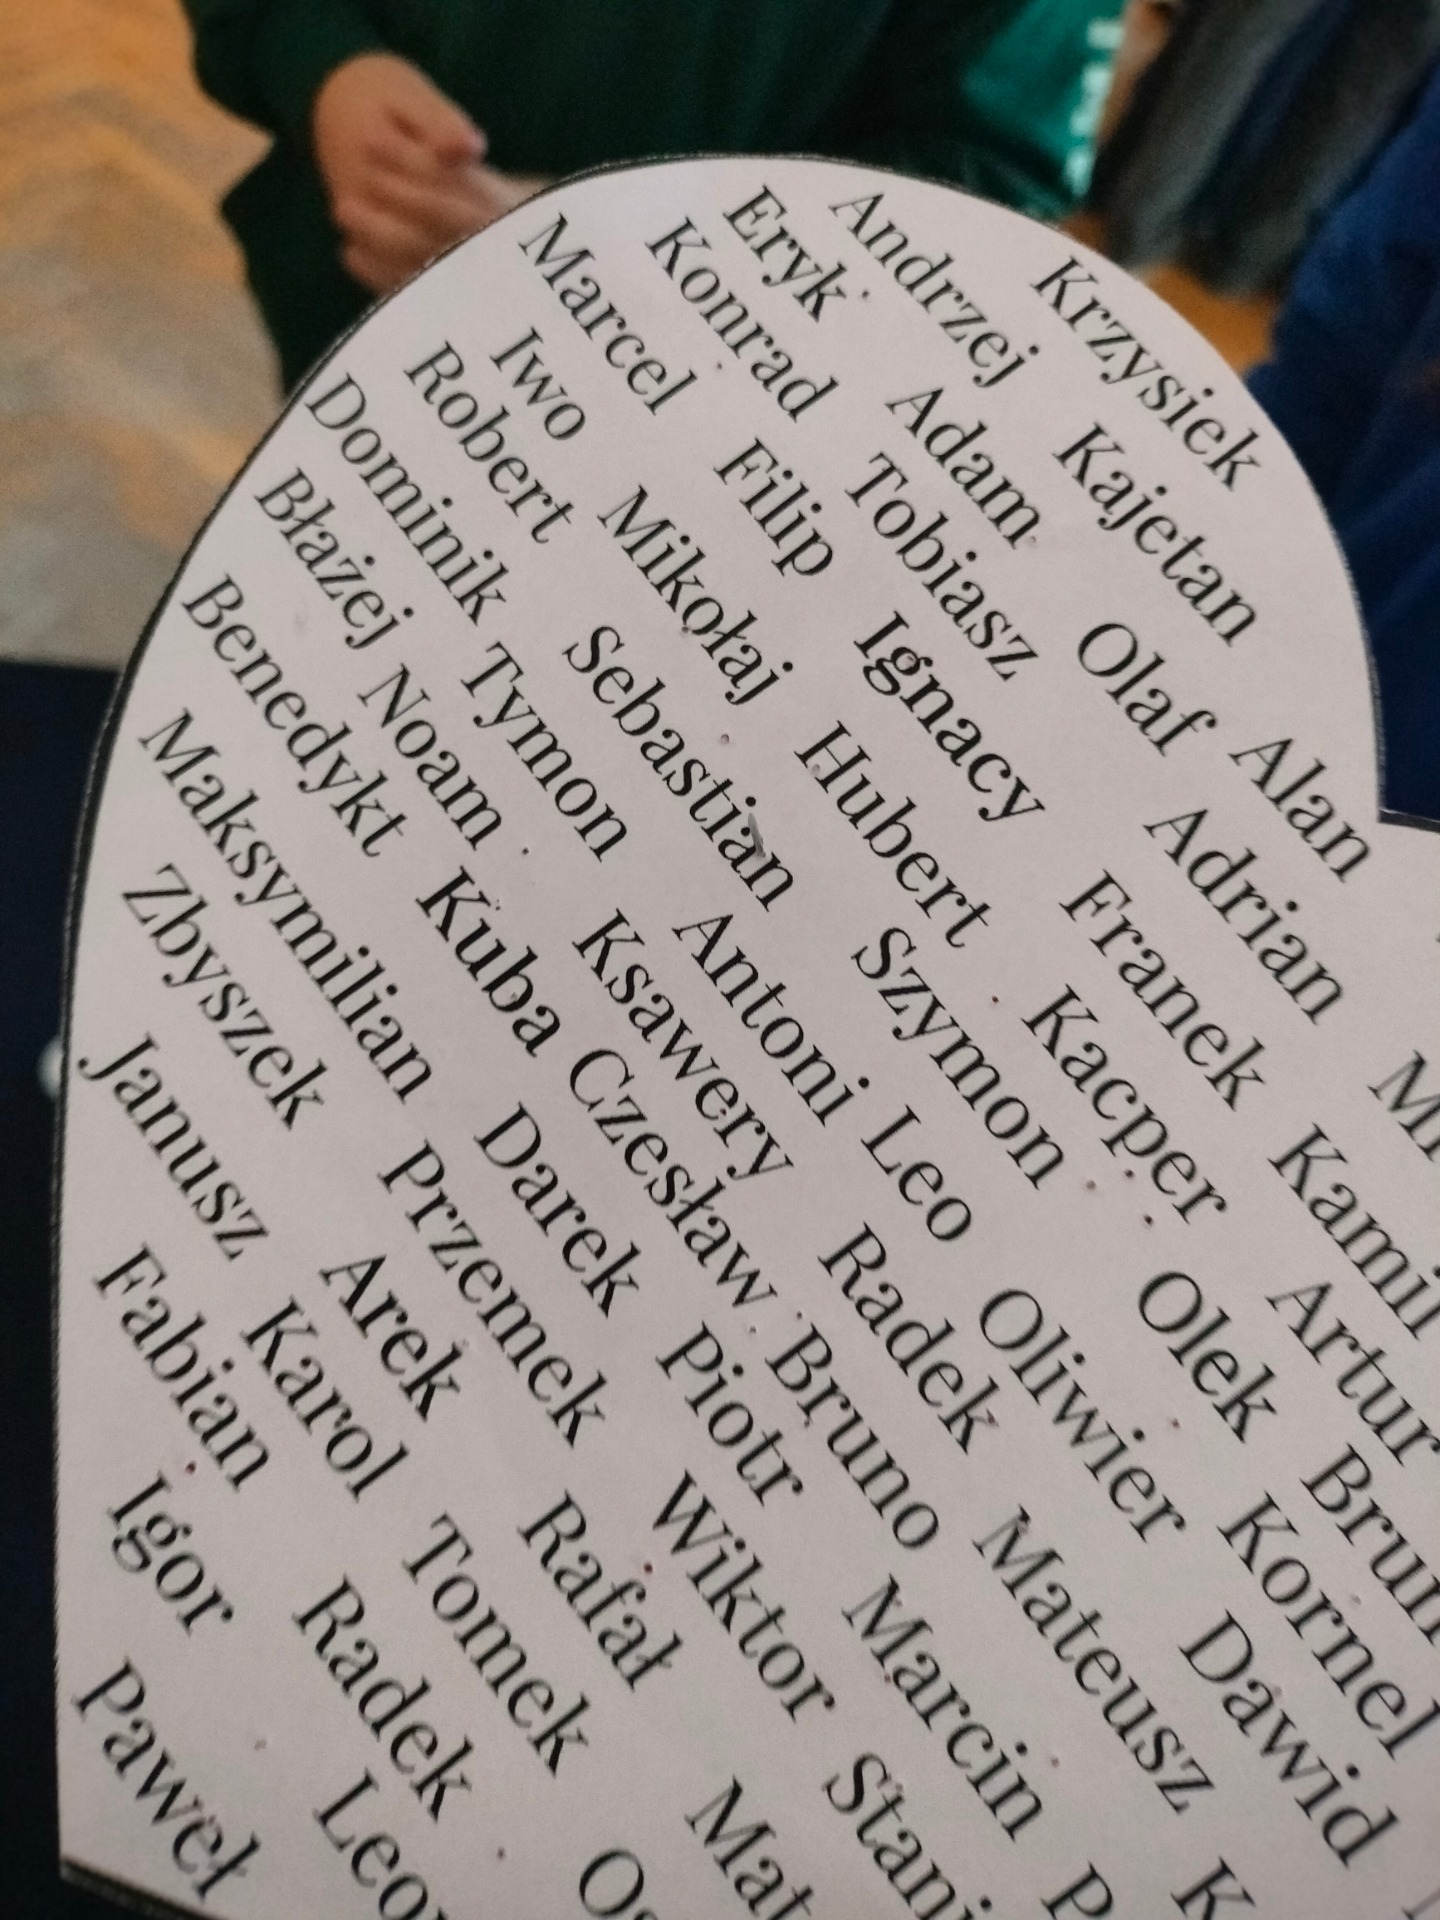 Krzysiek
Andrzej Kajetan
Eryk Adam Olaf Alan
Konrad Tobiasz Adrian
Marcel Filip Ignacy Franek Kamil
Iwo Mikołaj Hubert Kacper Artur
Robert Sebastian Szymon Olek
Dominik Tymon Antoni Leo Oliwier Kornel
Błażej Noam Ksawery Radek Mateusz Dawid
Benedykt Kuba Czesław Bruno Marcin
Maksymilian Darek Piotr Wiktor
Zbyszek Przemek Rafał
Janusz Arek Tomek
Karol Radek
Fabian
Igor
Paweł